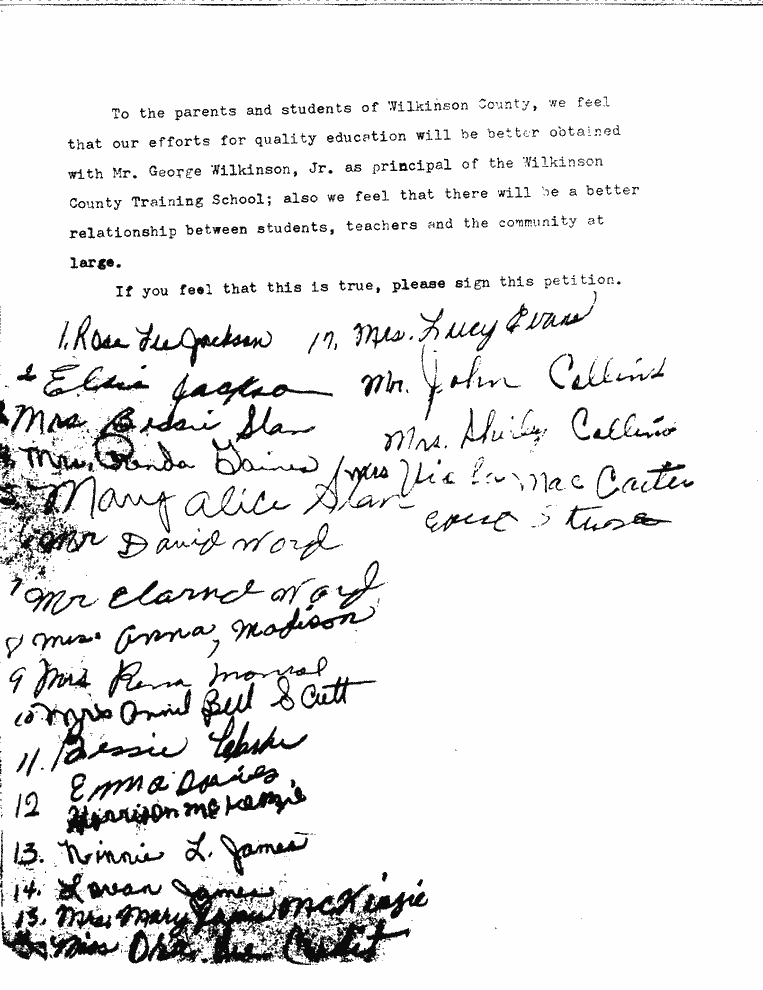 To the parents and students of Wilkinson County, we feel
that our efforts for quality education will be better obtained
with Mr. George Wilkinson, Jr. as principal of the Wilkinson
County Training School; also we feel that there will be a better
relationship between students, teachers and the community at
large.
If you feel that this is true, please sign this petition.
1. Rosa Lee Jackson
2 Elsie Jackson
3 Mrs. Bessie Slan
4 Mrs. Brenda Gaines
5 Mary Alice Slan
6 Mr David Word
7 Mr Word
8 Mrs. Anna, Madison
9 Mrs Rena
10 Mrs Bell Scutt
11. Bessie
12 Emma Davies
Harrison McKenzie
13. Ninnie L. James
14. Lovean James
15. Mrs. Mary James McKinzie
Miss Ora
17. Mrs. Lucy Evans
Mr. John Collins
Mrs. Shirley Collins
Mrs Mac Carter